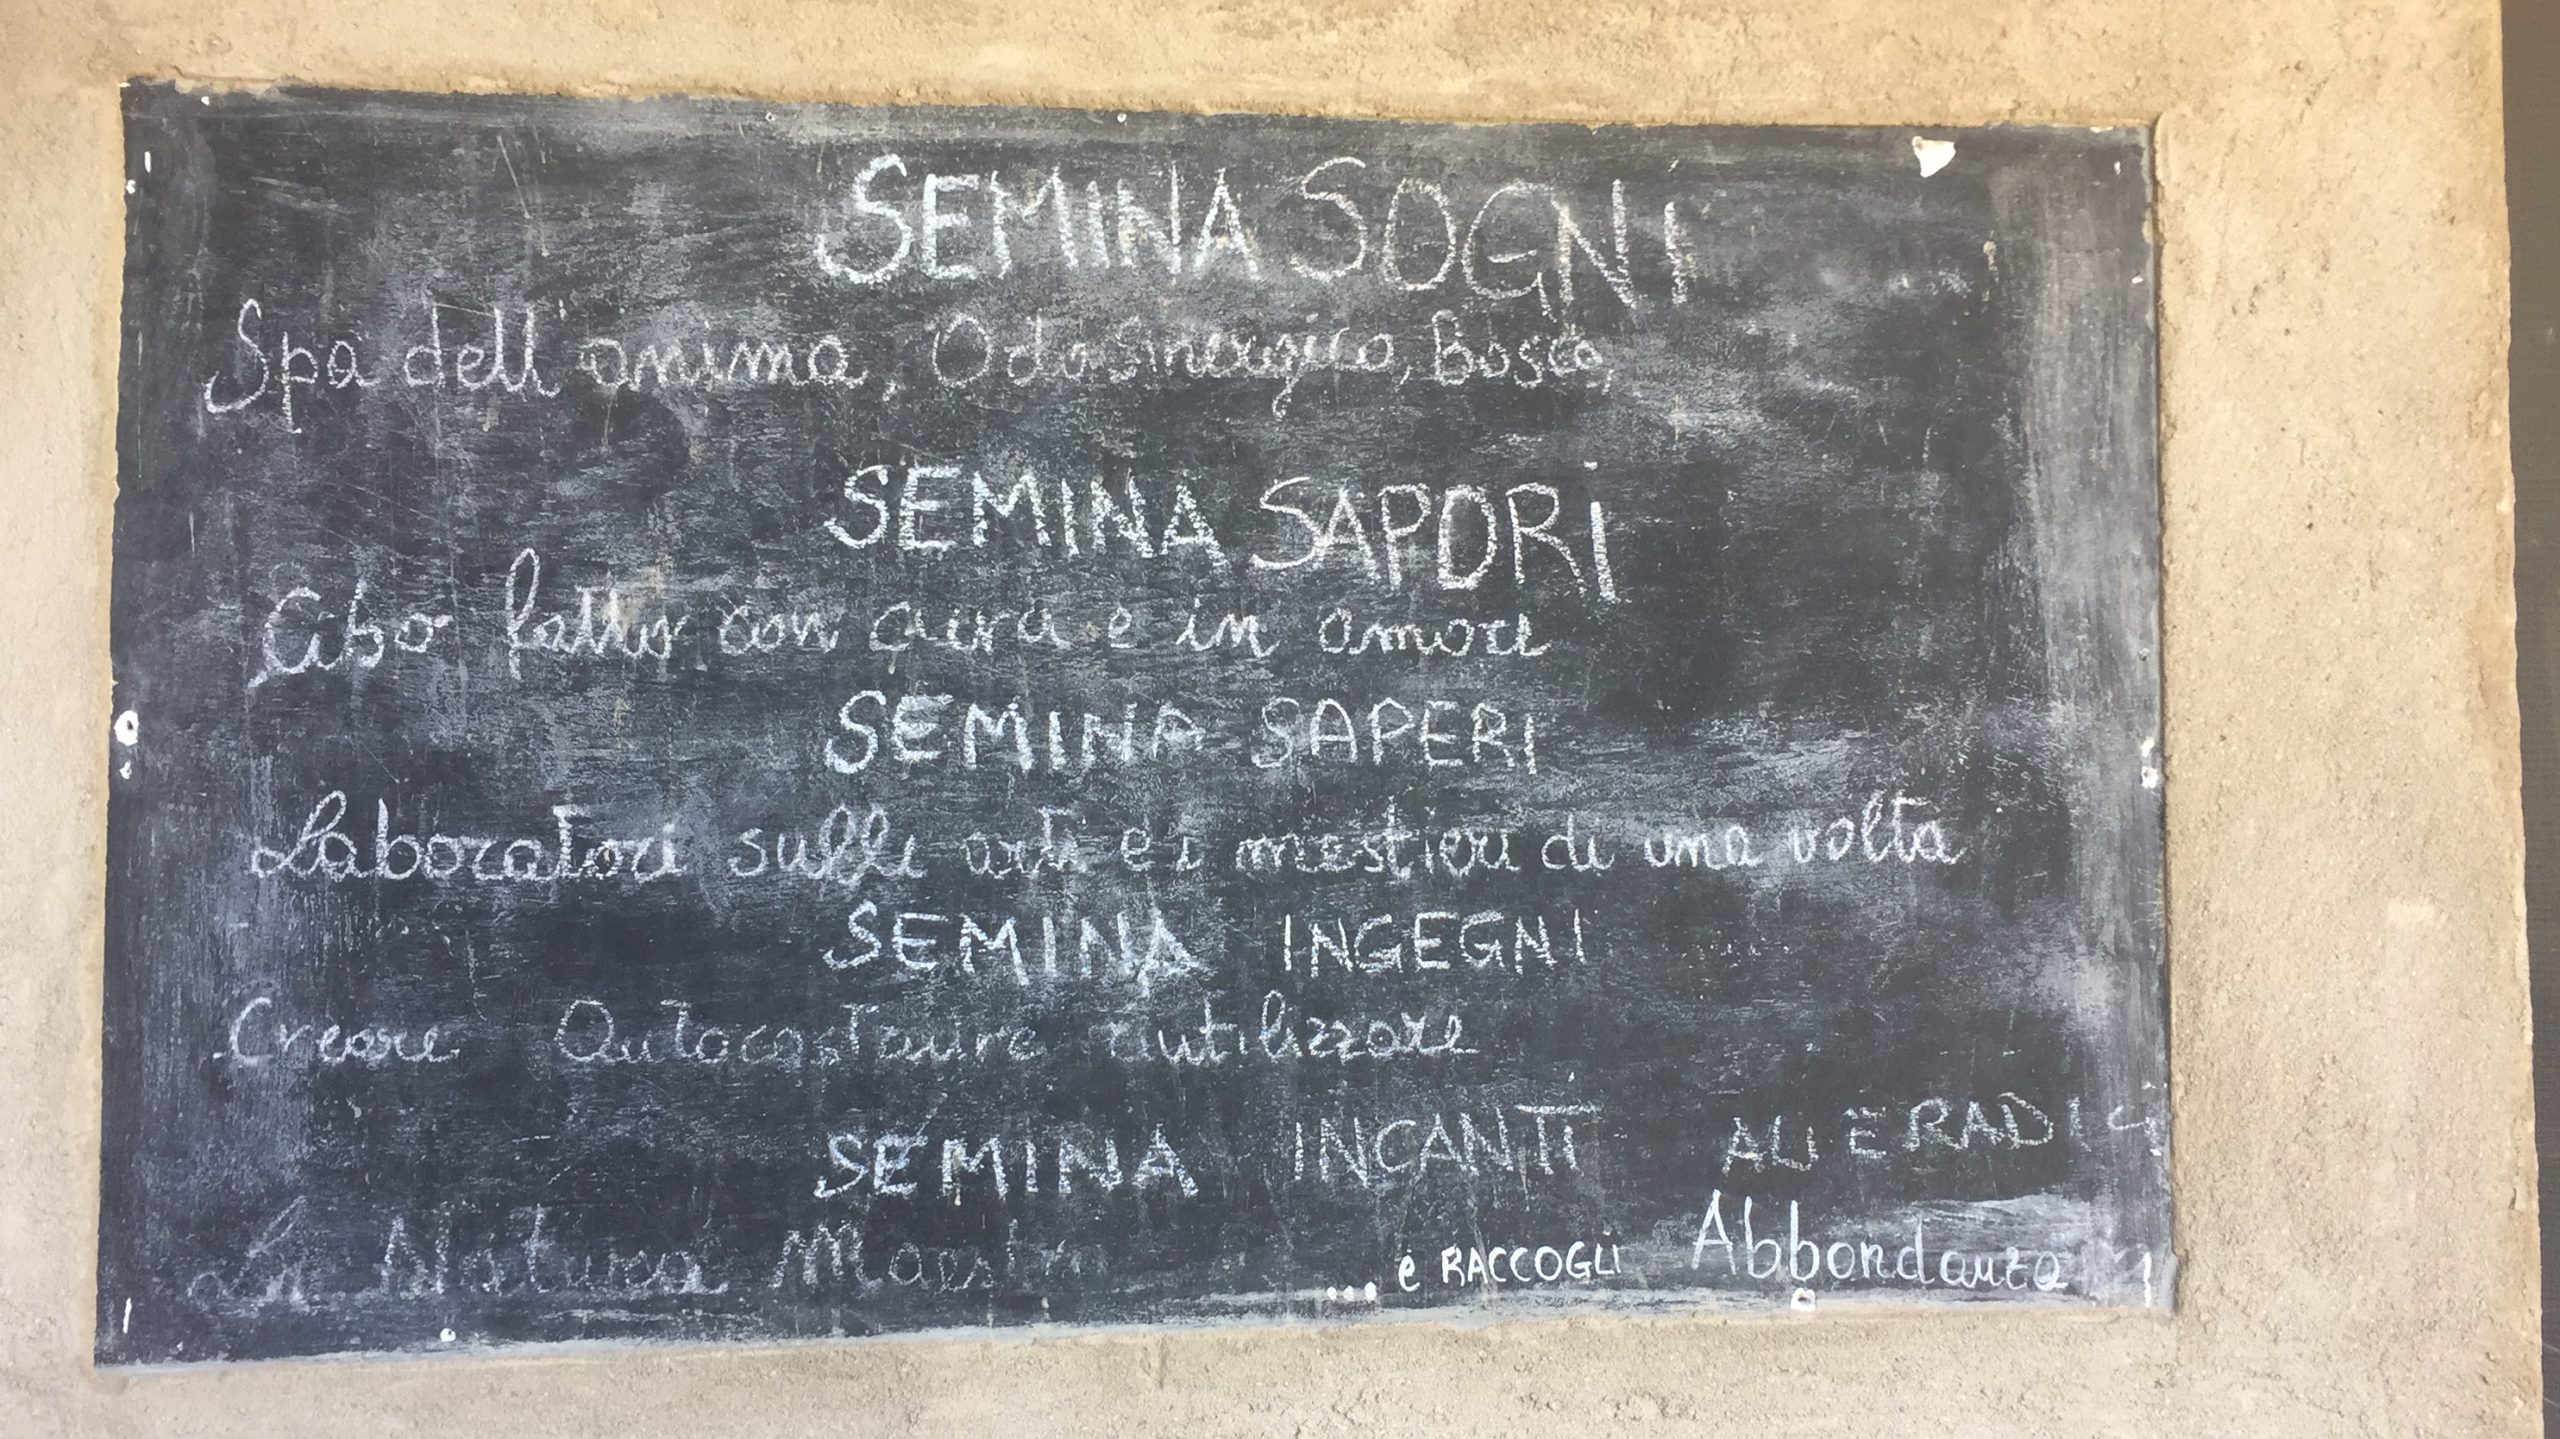 SEMINA SOGNI
Spa dell'anima, Orto Sinergico, Bosco,
SEMINA SAPORI
Cibo fatto con cura e in amore
SEMINA SAPERI
Laboratori sulle arti e i mestieri di una volta
SEMINA INGEGNI
Creare Autocostruire riutilizzare
SEMINA INCANTI ALI E RADICI
La Natura Maestra
... e RACCOGLI Abbondanza